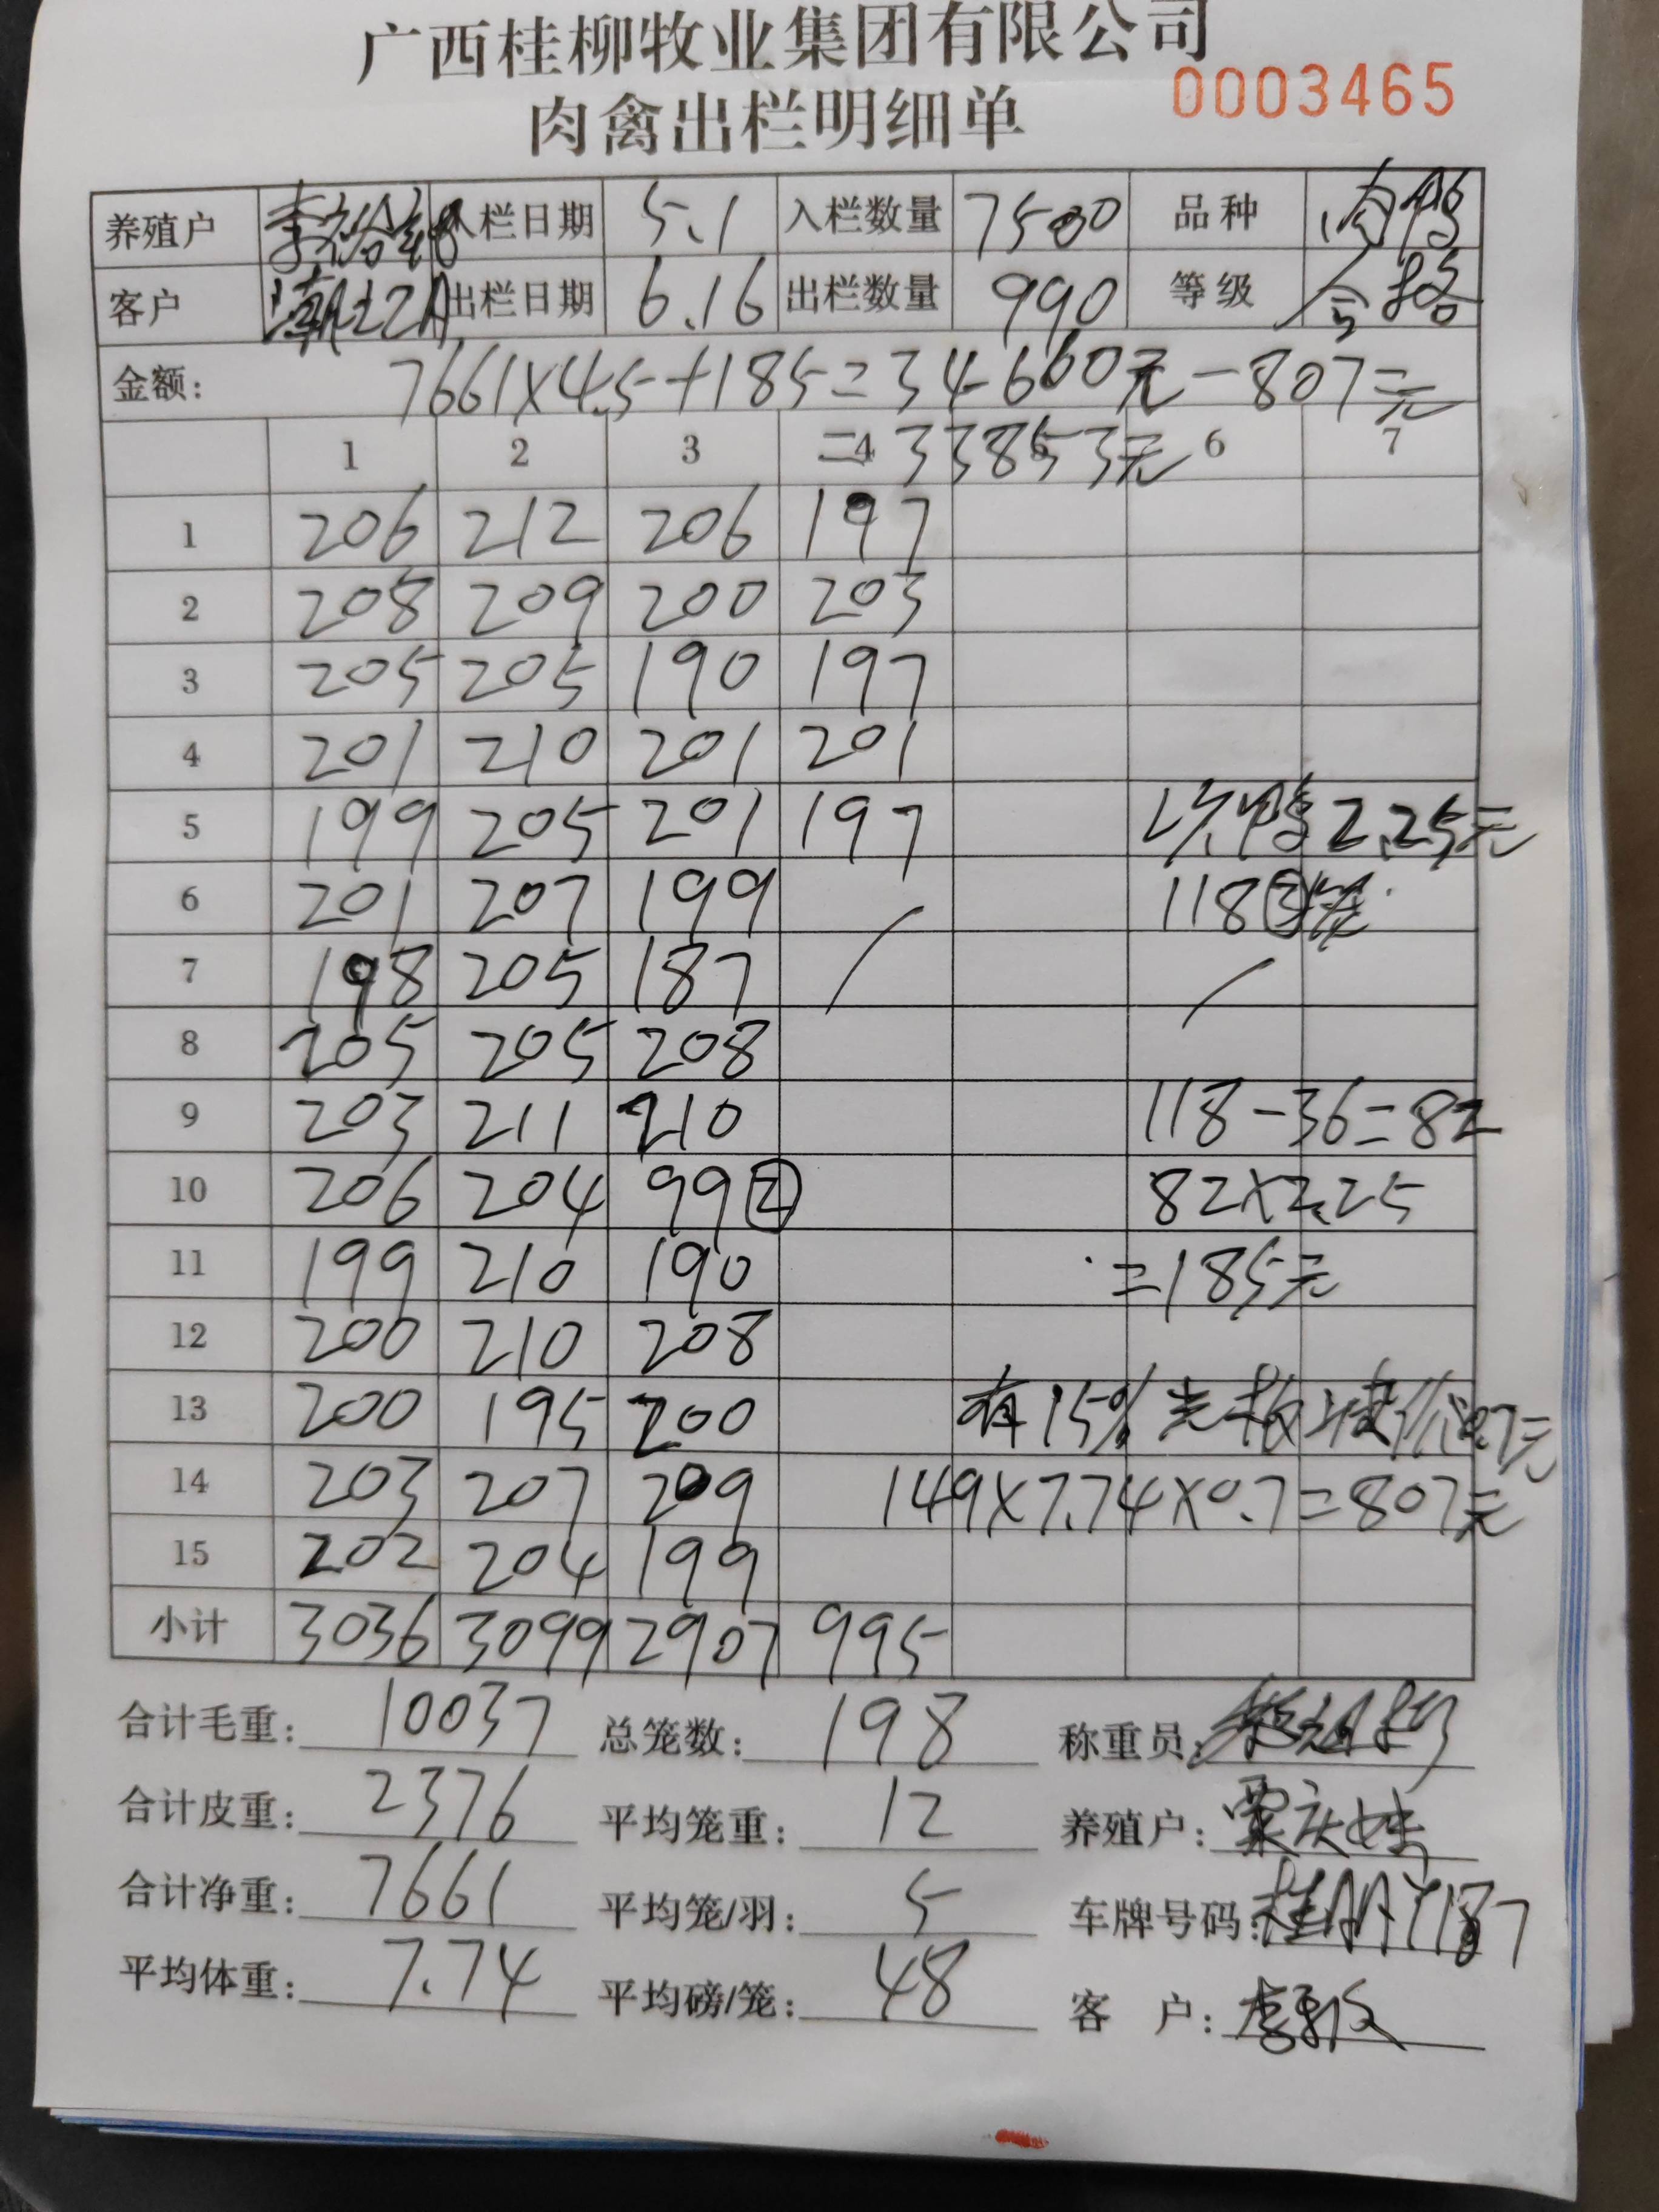 广西桂柳牧业集团有限公司
肉禽出栏明细单 0003465
养殖户 李裕 入栏日期 5.1 入栏数量 7500 品种 肉鸭
客户 出栏日期 6.16 出栏数量 990 等级 合格
金额: 7661×4.5+185=34660元-807元
=33853元
1 2 3 4 5 6 7
1 206 212 206 197
2 208 209 200 203
3 205 205 190 197
4 201 210 201 201
5 199 205 201 197 鸭2.25元
6 201 207 199 118
7 198 205 187
8 205 205 208
9 203 211 210 118-36=82
10 206 204 99② 82×2.25
11 199 210 190 =185元
12 200 210 208
13 200 195 200 有15%光板 0.7元
14 203 207 209 149×7.74×0.7=807元
15 202 204 199
小计 3036 3099 2907 995
合计毛重: 10037 总笼数: 198 称重员:
合计皮重: 2376 平均笼重: 12 养殖户: 覃庆
合计净重: 7661 平均笼/羽: 5 车牌号码:
平均体重: 7.74 平均磅/笼: 48 客 户: